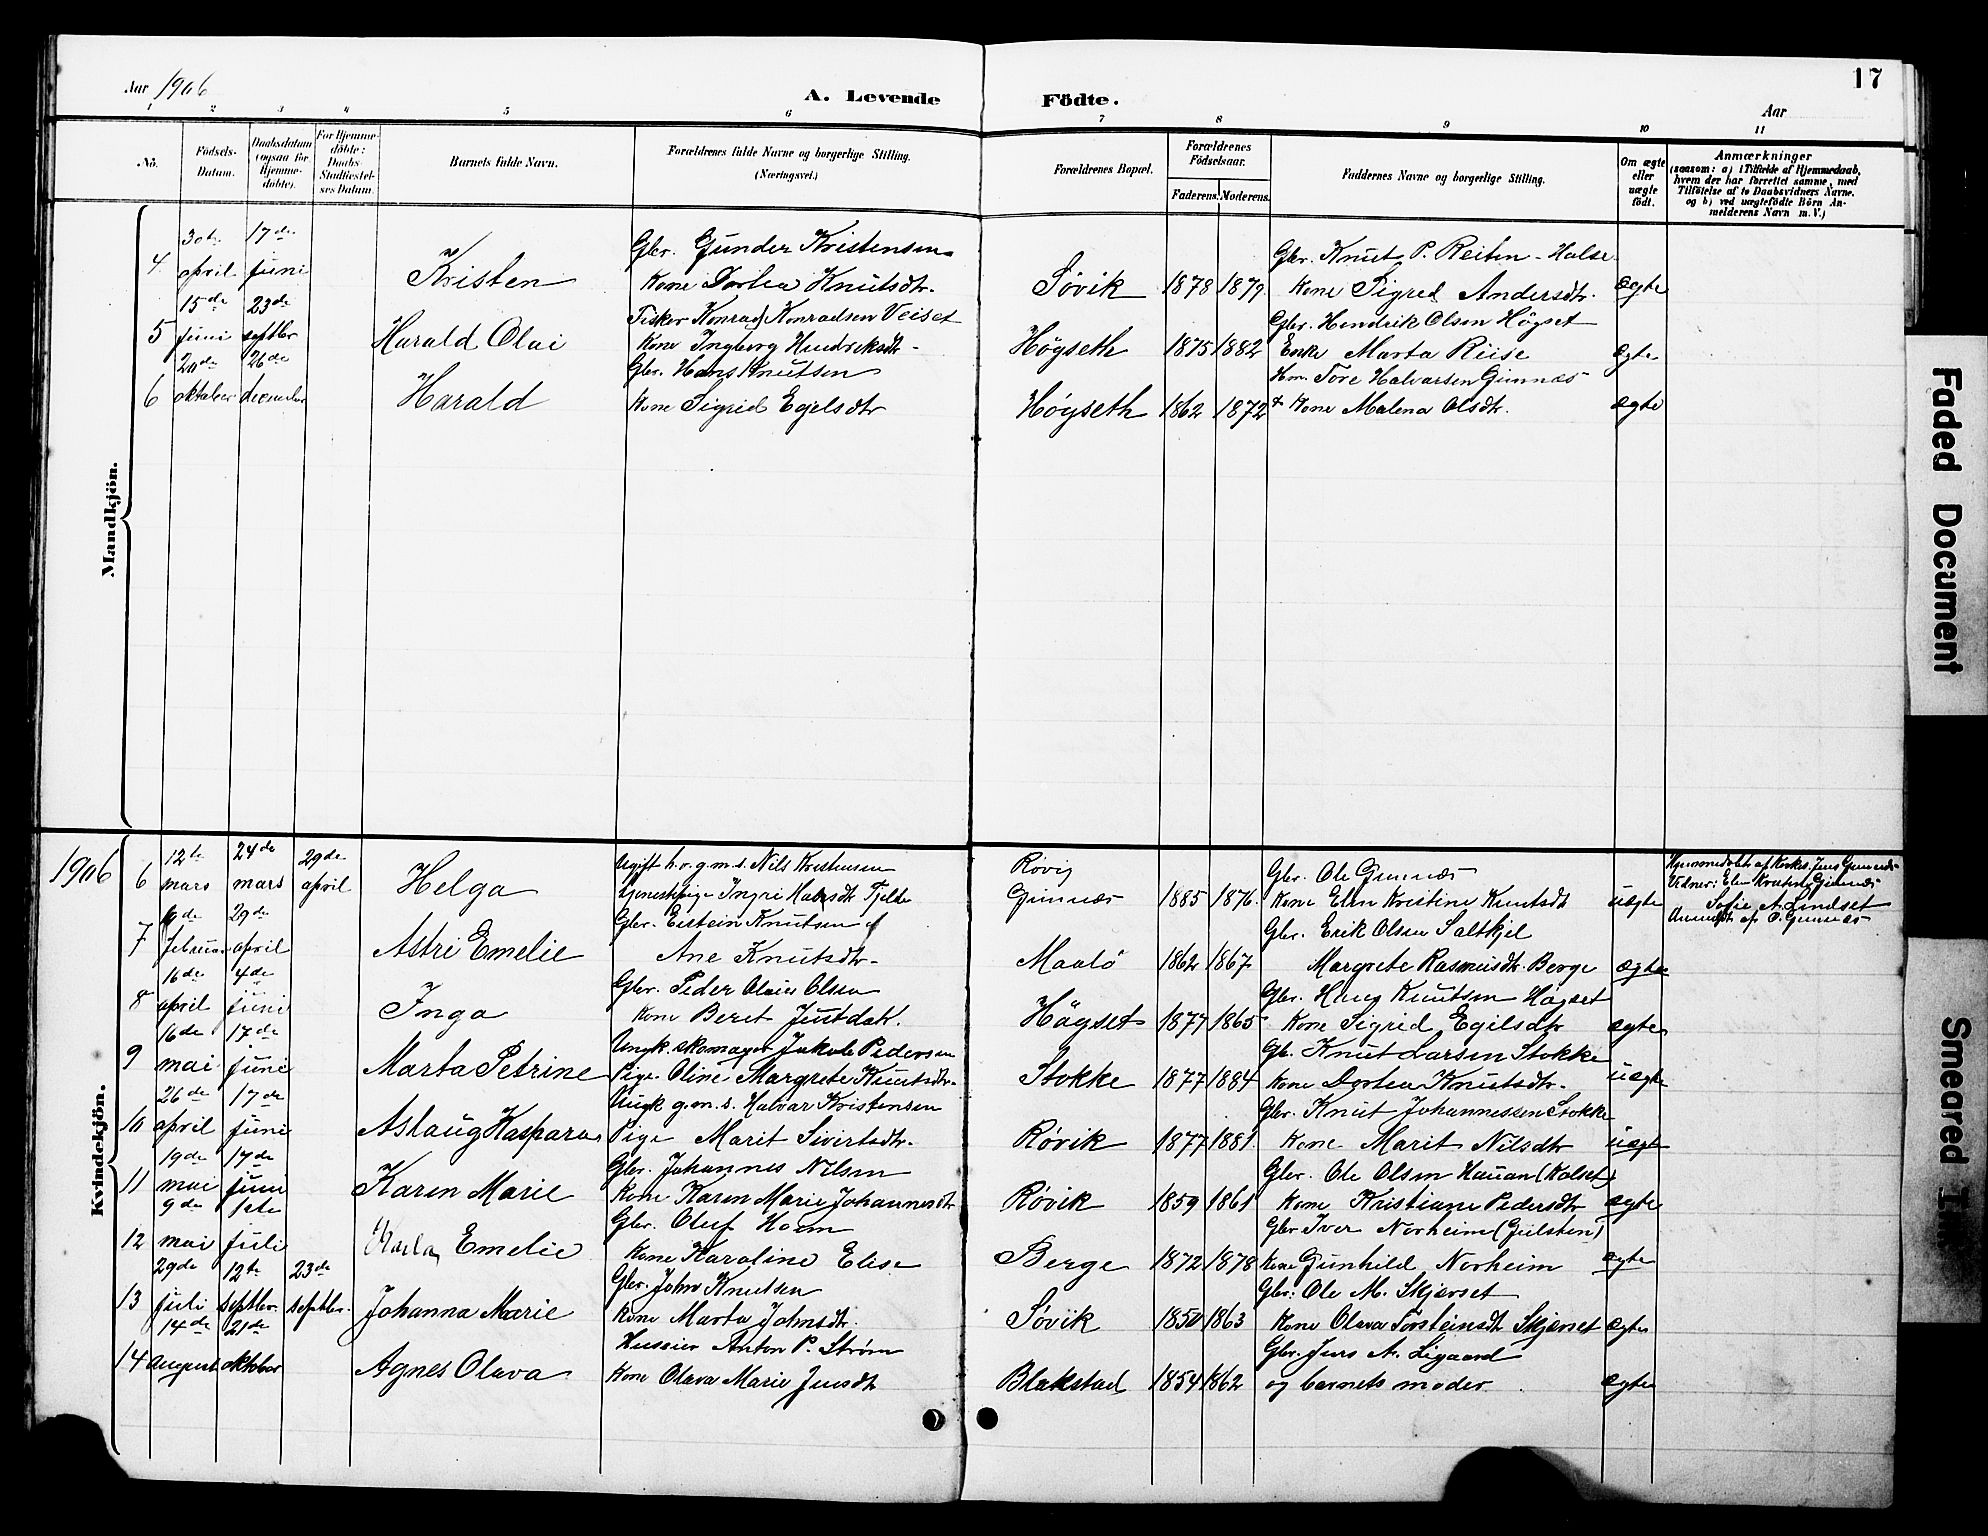 Aar 1906
A. Levende Födte.
17
Aar
1 2 3 4 5 6 7 8 9 10 11
No.
Födsels-Datum.
Daabsdatum (ogsaa for Hjemme-döbte).
For Hjemme-döbte: Daabs-Stadfæstelses Datum.
Barnets fulde Navn.
Forældrenes fulde Navne og borgerlige Stilling. (Næringsvei.)
Forældrenes Bopæl.
Forældrenes Födselsaar.
Faderens. Moderens.
Faddernes Navne og borgerlige Stilling.
Om ægte eller uægte födt.
Anmærkninger
(saasom: a) i Tilfælde af Hjemmedaab,
hvem der har forrettet samme, med
Tilföielse af to Daabsvidners Navne.
og b) ved uægtefödte Börn An-
melderens Navn m. V.)
Mandkjön.
4 30te april 17de juni Kristen Gbr. Gunder Kristensen
Kone Dortea Knutsdtr. Søvik 1878 1879 Gbr. Knut P. Reiten - Halse
Kone Sigred Andersdtr. ægte
5 15de juni 23de septbr Harald Olai Fisker Konrad Konradsen Veiset
Kone Ingborg Hendriksdtr - Høgseth 1875 1882 Gbr. Hendrik Olsen Högset
Enke Marta Riise ægte
6 20de oktober 26de december Harald Gbr. Hans Knutsen
Kone Sigrid Egelsdtr Høgseth 1862 1872 Tore Halvorsen Gimnæs
+ Kone Malena Olsdtr. ægte
Kvindekjön.
1906
6 12te mars 24de mars 29de april Helga Ugift Nils Kristensen
Ingri Tjelde Røvig
Gimnæs 1885 1876 Gbr. Ole Gimnæs
Kone Elen Kristine Knutsdtr uægte
Hjemmedöbt af Jens Gimnæs
Vidner: Elen Kristine Gimnæs
Sofie A. Lindset
Anmeldt af O. Gimnæs
7 9de februar 29de april Astri Emelie Gbr. Eistein Knutsen
Ane Knutsdtr - Maalö 1862 1867 Gbr. Erik Olsen Saltkjel
Margrete Rasmusdtr. Berge ægte
8 16de april 4de juni Inga Gbr. Peder Olaus Olsen
Kone Beret Justdat. Högset 1877 1865 Gbr. Knutsen Högset
Kone Sigrid Egilsdtr ægte
9 16de mai 17de juni Marta Petrine Ungk. skomager Jakob Pedersen
Pige Oline Margrete Knutsdtr - Stokke 1877 1884 Gb. Knut Larsen Stokke
Kone Dortea Knutsdtr. uægte
10 26de april 17de juni Aslaug Kaspara Ungk g.m.s. Halvar Kristensen
Pige Marit Sivertsdtr. Røvik 1877 1881 Gbr. Knut Johannessen Stokke
Kone Marit Nilsdtr uægte
11 19de mai 17de juni Karen Marie Gbr. Johannes Nilsen
Kone Karen Marie Johannesdtr Røvik 1859 1861 Gbr. Ole Olsen Hauan (Kalset)
Kone Kristiane Pedersdtr ægte
12 9de mai 1ste juli Karla Emelie Gbr. Oluf Holm
Kone Karoline Elise Berge 1872 1878 Gbr Iver Norheim (Gulsten)
Kone Gunhild Norheim ægte
13 29de juli 12te septbr. 23de septbr. Johanna Marie Gbr. John Knutsen
Kone Marta Johnsdtr. Søvik 1850 1863 Gbr: Ole M. Skjærset
Kone Olava Torsteinsdtr Skjærset ægte
14 14de august 21de oktober Agnes Olava Husmier Anton P. Strøm
Kone Olava Marie Jensdtr Blakstad 1854 1862 Gbr. Jens A. Ligaard
og barnets moder. ægte
Faded Document
Smeared Ink